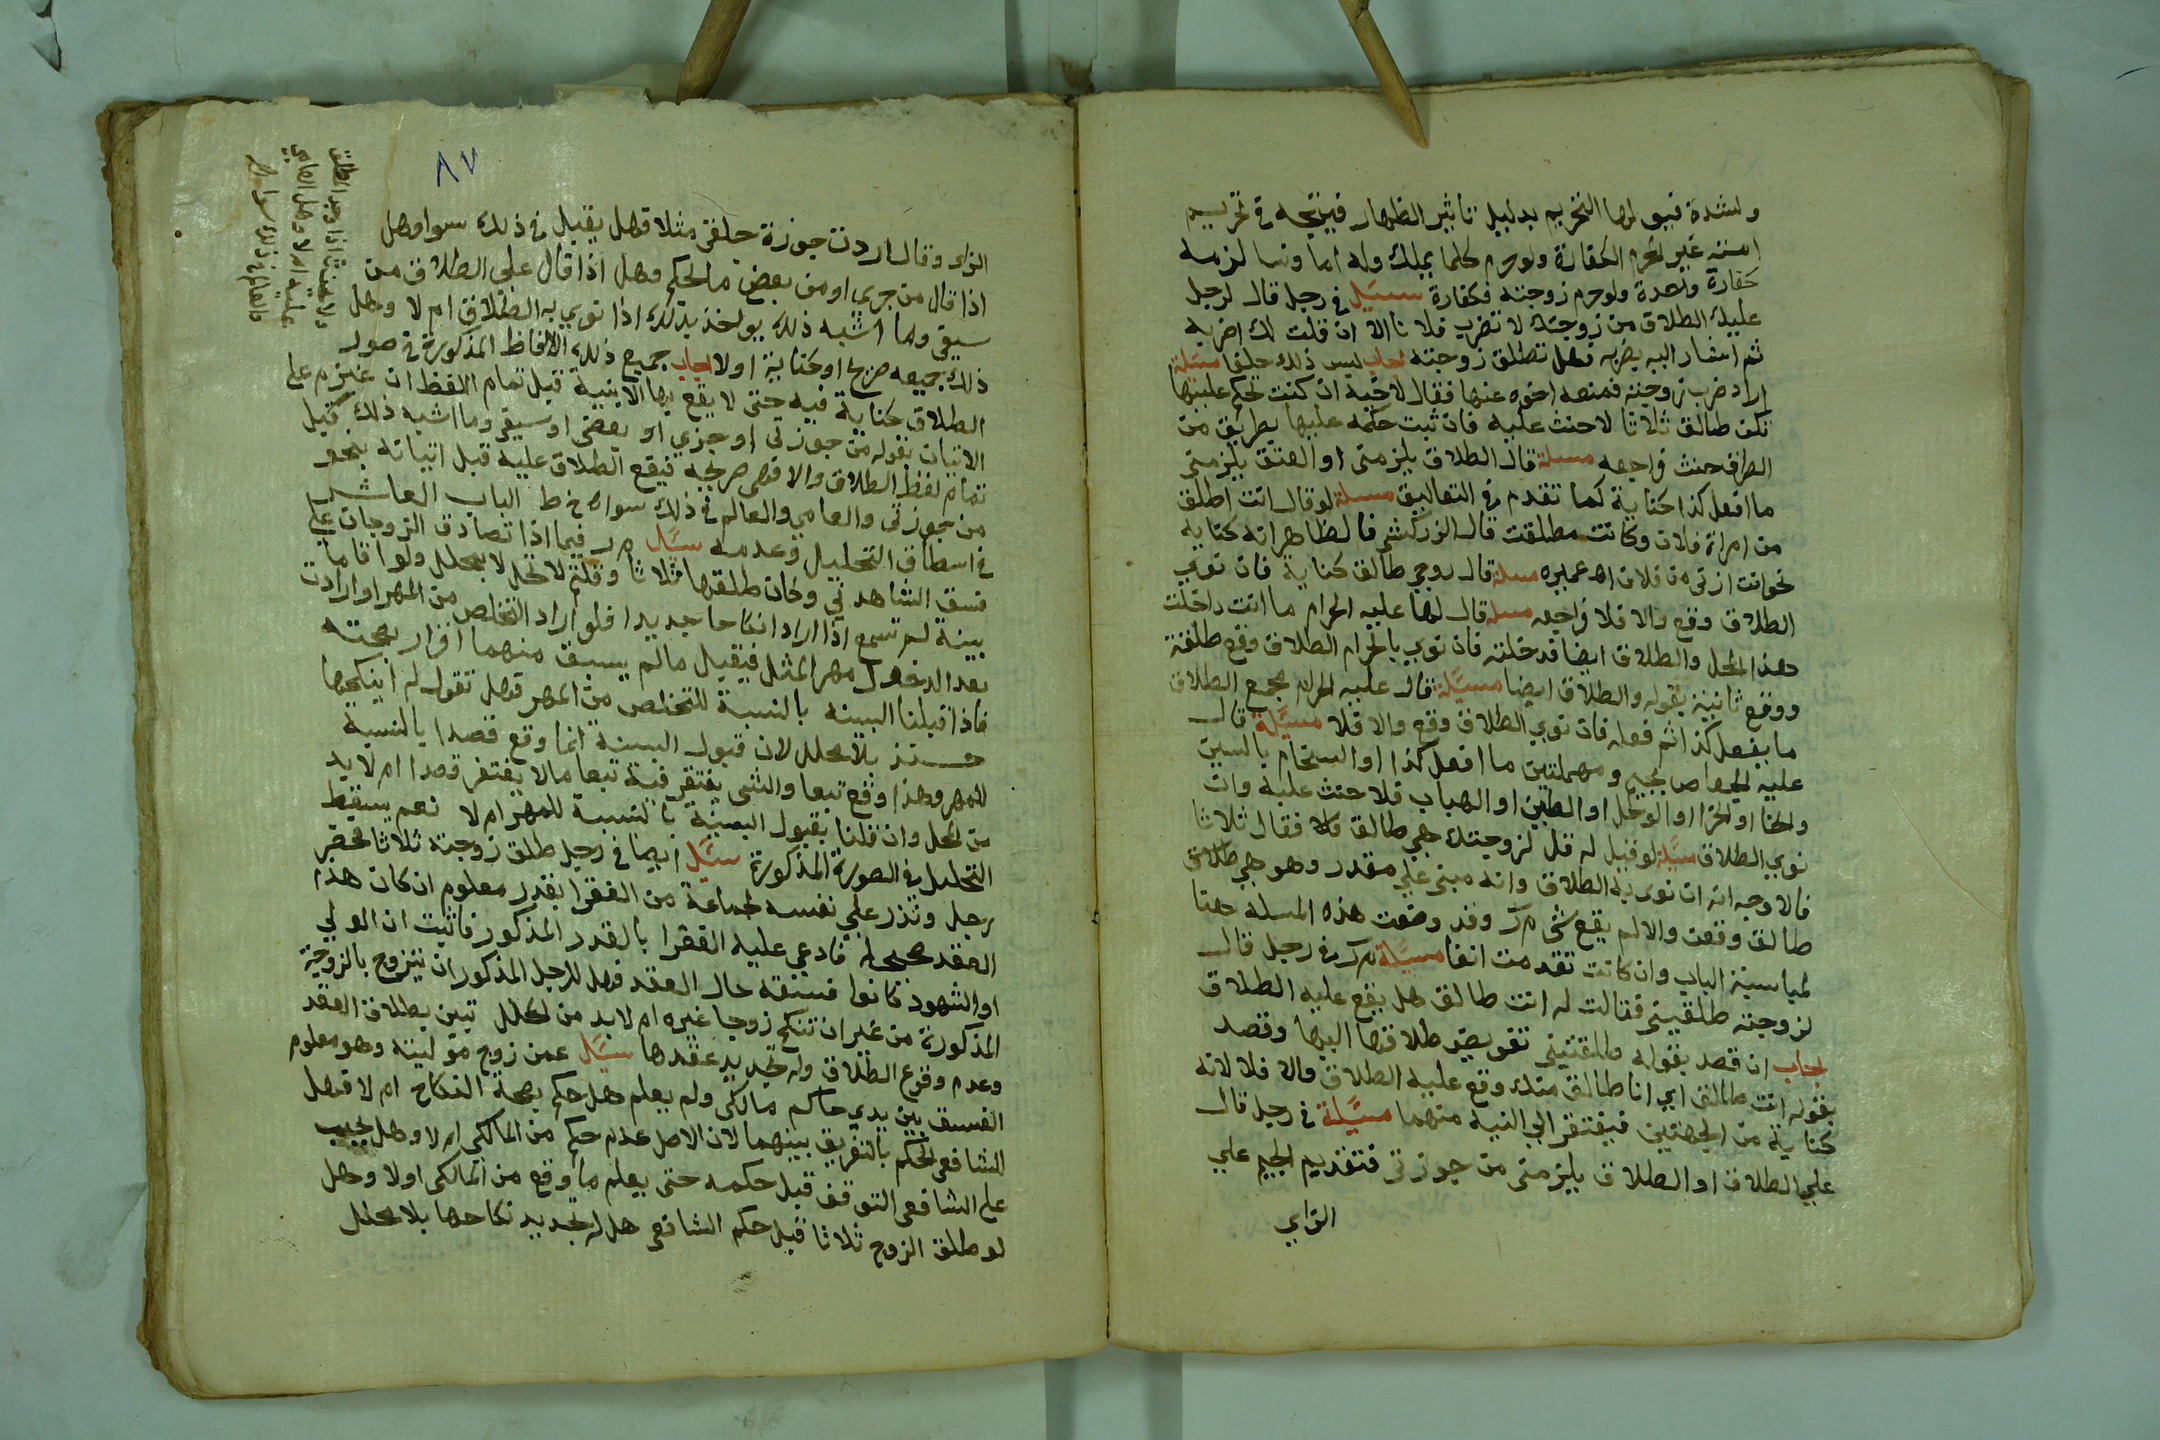 ولشدة قبولها التحريم بدليل تاثير الظهار فيتجه في تحريم
امته غير المحرم الكفارة ولو حرم كلما يملك وله اما ونسا لزمه
كفارة واحدة ولو حرم زوجته فكفارة سيل في رجل قال لرجل
عليك الطلاق من زوجتك لا تضرب فلانا الا ان قلت لك اضربه
ثم اشار اليه يضربه فهل تطلق زوجته اجاب ليس ذلك حلفا مسئلة
اراد ضرب زوجته فمنعه اخوه عنها فقال لاخيه ان كنت تحكم عليها
تكن طالق ثلاثا لا حنث عليه فان ثبت حكمه عليها بطريق من
الطرق حنث فراجعه مسئلة قال الطلاق يلزمني او العتق يلزمني
ما افعل كذا كناية كما تقدم في التعاليق مسئلة لو قال انت اطلق
من امراة فلان وكانت مطلقت قال الزركشي فالظاهر انه كناية
نحو انت ازنى من فلان اه عميره مسئلة قال روحي طالق كناية فان نوي
الطلاق وقع والا فلا فراجعه مسئلة قال لها عليه الحرام ما انت داخلت
هذا المحل والطلاق ايضا قد خلته فان نوي بالحرام الطلاق وقع طلقة
ووقع ثانية بقوله والطلاق ايضا مسئلة قال عليه الحرام بجميع الطلاق
ما يفعل كذا ثم فعله فان نوي الطلاق وقع والا فلا مسئلة قال
عليه الجعاص بجيم ومهملتين ما افعل كذا او السخام بالسين
والخا او الخرا او الوحل او الطين او الهباب فلا حنث عليه وان
نوي الطلاق مسئلة لو قيل له قل لزوجتك هي طالق فلا فقال ثلاثا
فالاوجه انه ان نوى به الطلاق وانه مبني علي مقدر وهو هي طلامتي
طالق وقعن والا لم يقع شي م ر وقد وضعت هذه المسلة هنا
لمناسبة الباب وان كانت تقدمت انفا مسئلة م ر في رجل قال
لزوجته طلقيني فقالت له انت طالق هل يقع عليه الطلاق
اجاب ان قصد بقوله طلقتيني تفويض طلاقها اليها وقصد
بقوله انت طالق اي انا طالق منك وقع عليه الطلاق والا فلا لانه
كناية من الجهتين فيفتقر الي النية منهما مسئلة في رجل قال
علي الطلاق او الطلاق يلزمني من جوزتي فتقديم الجيم علي
الزاي
٨٧
الزاي وقال اردت جوزة حلقي مثلا فهل يقبل في ذلك سوا وهل
اذا قال من جري او من بعض ما الحكم وهل اذا قال علي الطلاق من
سيقي وما اشبه ذلك يواخذ بذلك اذا نوي به الطلاق ام لا وهل
ذلك جميعه صريح او كناية او لا اجاب جميع ذلك الالفاظ المذكورة في صور
الطلاق كناية فيه حتى لا يقع بها الا بنية قبل تمام اللفظ ان عزم علي
الاتيان بقوله من جوزتي او جزي او بعضي او سيقي وما اشبه ذلك قبل
تمام لفظ الطلاق والا فهي صريحه فيقع الطلاق عليه قبل اتيانه بنحو
من جوزتي والعامي والعالم في ذلك سوا اه خ ط الباب العاشر
في اسطاق التحليل وعدمه سيل م ر فيما اذا تصادق الزوجان علي
فسق الشاهدين وكان طلقها ثلاثا وقلتم لا تحل لا بمحلل ولو اقاما
بينة لم تسمع اذا اراد انكاحا جديدا فلو اراد التخلص من المهر او ارادت
بعد الدخول مهر المثل فيقبل ما لم يسبق منهما اقرار بصحته
فاذا قبلنا البينه بالنسبة للتخلص من المهر فهل تقول له ان ينكحها
حينئذ بلا محلل لان قبول البينة انما وقع قصدا بالنسبة
للمهر وهذا وقع تبعا والشي يغتفر فيه تبعا ما لا يغتفر قصدا ام لا بد
من المحل وان قلنا بقبول البينة بالنسبة للمهر ام لا نعم يسقط
التحليل في الصورة المذكورة سيل ايضا في رجل طلق زوجته ثلاثا فحضر
رجل ونذر علي نفسه لجماعة من الفقرا بقدر معلوم ان كان هذا
العقد صحيحا فادعي عليه الفقرا بالقدر المذكور فاثبت ان الولي
او الشهود كانوا فسقة حال العقد فهل للرجل المذكور ان يتزوج بالزوجة
المذكورة من غير ان تنكح زوجا غيره ام لا بد من المحلل تبين بطلان العقد
وعدم وقوع الطلاق وله تجديد عقدها سيل عمن زوج موليته وهو معلوم
الفسق بين يدي حاكم مالكي ولم يعلم هل حكم بصحة النكاح ام لا فهل
للشافعي الحكم بالتفريق بينهما لان الاصل عدم حكم من المالكي ام لا وهل يجب
علي الشافعي التوقف قبل حكمه حتى يعلم ما وقع من المالكي او لا وهل
لو طلق الزوج ثلاثا قبل حكم الشافعي هل له تجديد نكاحها بلا محلل